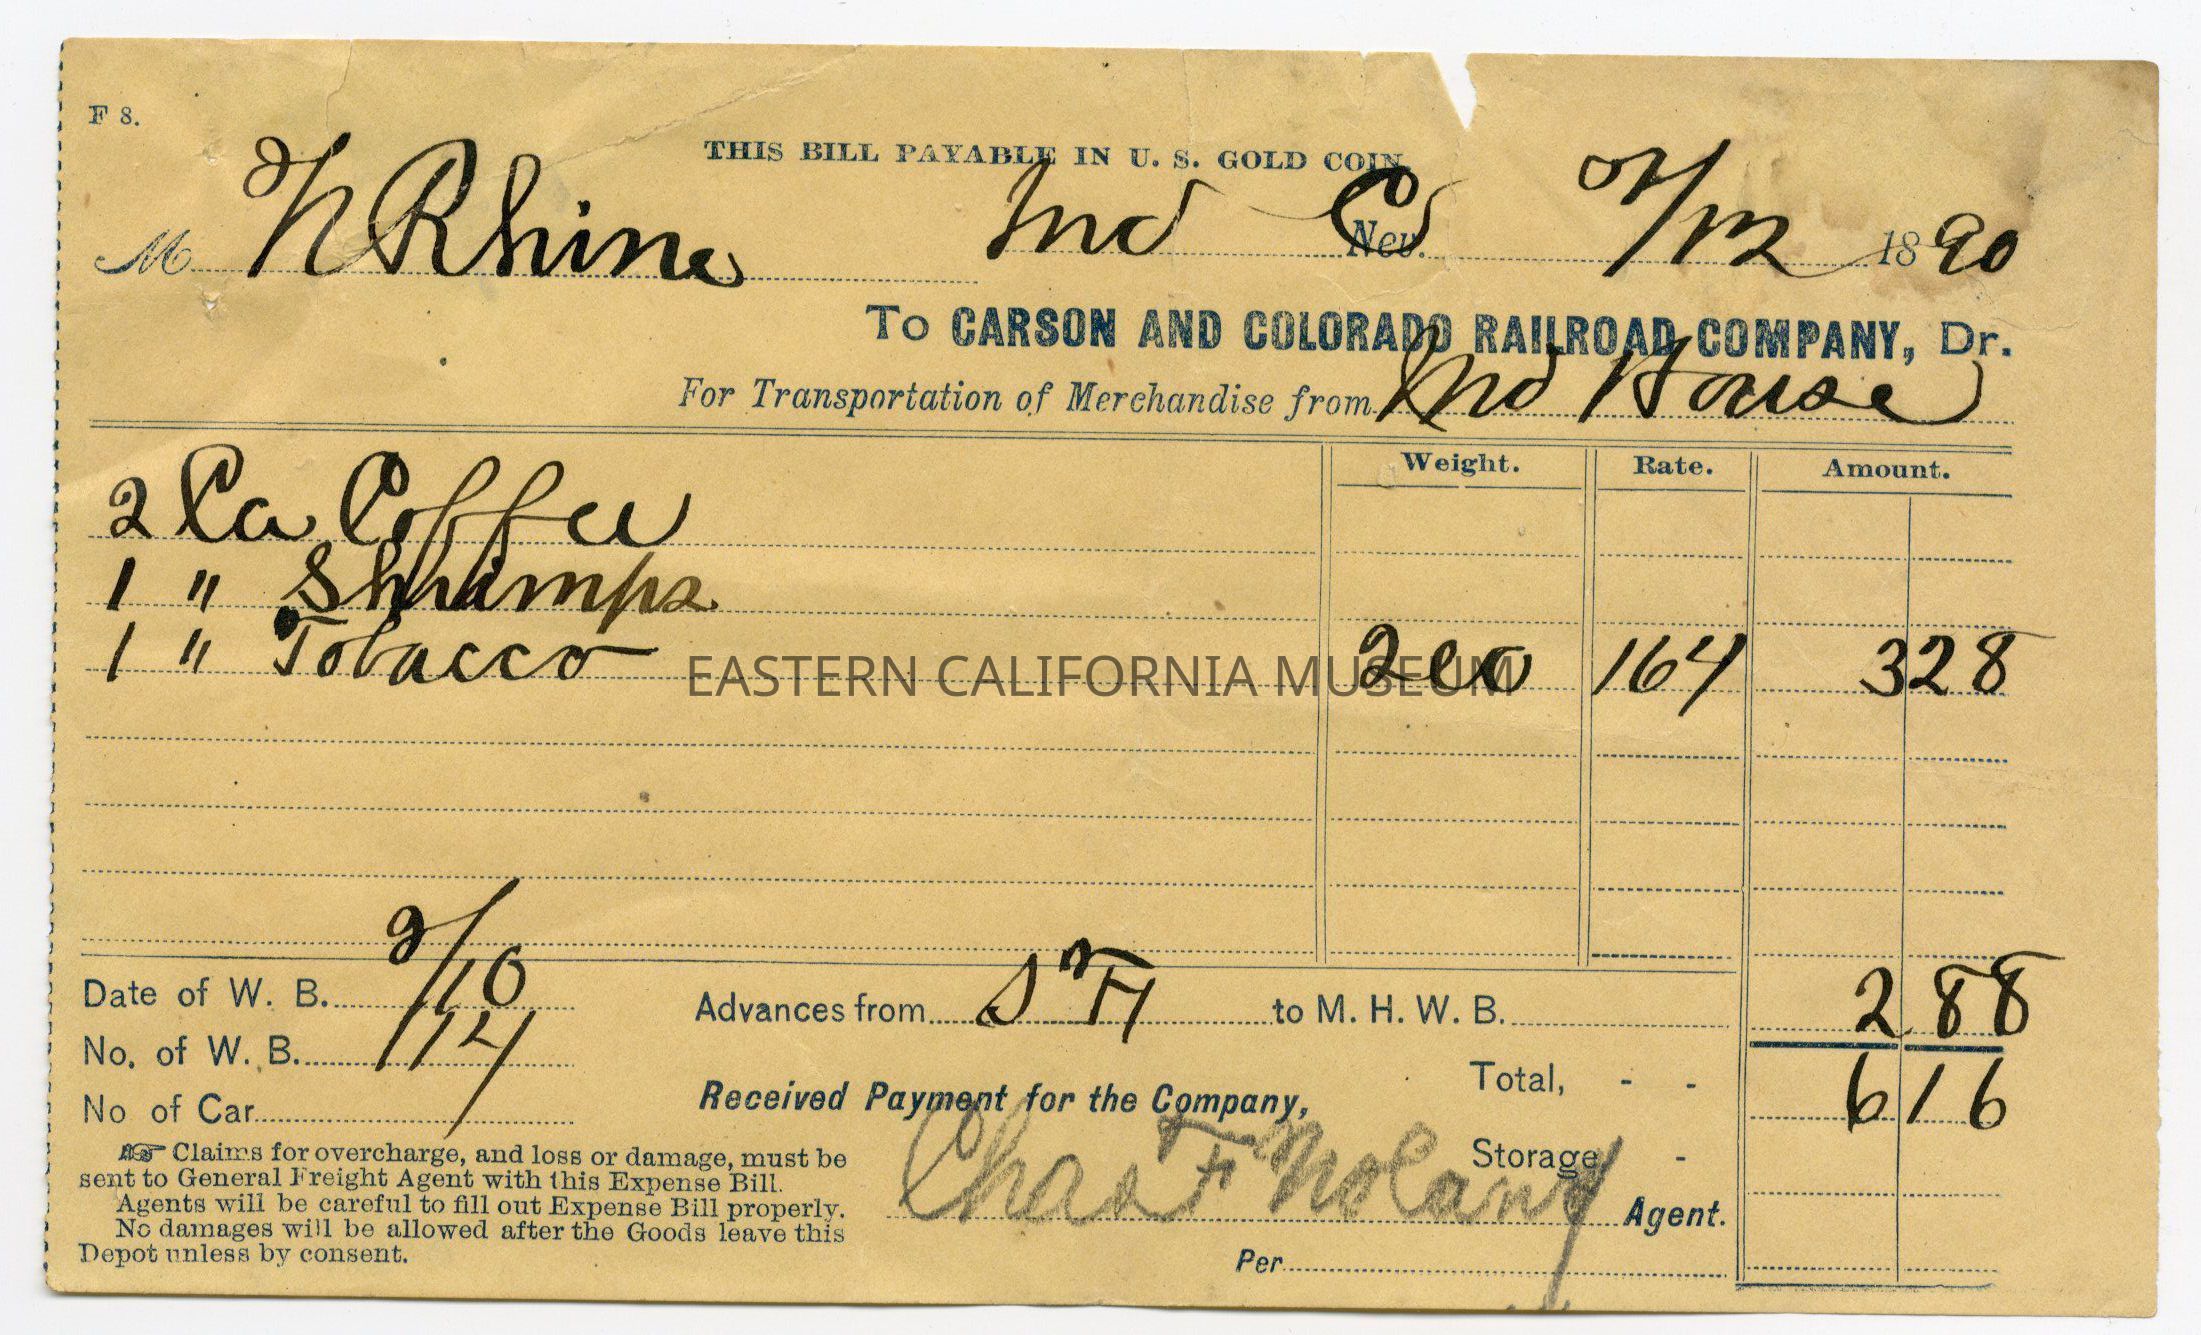 F 8.
THIS BILL PAYABLE IN U. S. GOLD COIN.
M N Rhine Nev. 2/12 1890
To CARSON AND COLORADO RAILROAD COMPANY, Dr.
For Transportation of Merchandise from Md House
Weight. Rate. Amount.
2 Ca Coffee
1 " Shrimps
1 " Tobacco 200 164 328
EASTERN CALIFORNIA MUSEUM
Date of W. B. 2/10 Advances from to M. H. W. B. 2 88
No. of W. B. 114
Total, - - 6 16
No of Car
Received Payment for the Company,
Storage -
☞ Claims for overcharge, and loss or damage, must be
sent to General Freight Agent with this Expense Bill.
Agents will be careful to fill out Expense Bill properly.
No damages will be allowed after the Goods leave this
Depot unless by consent.
Chas F Agent.
Per